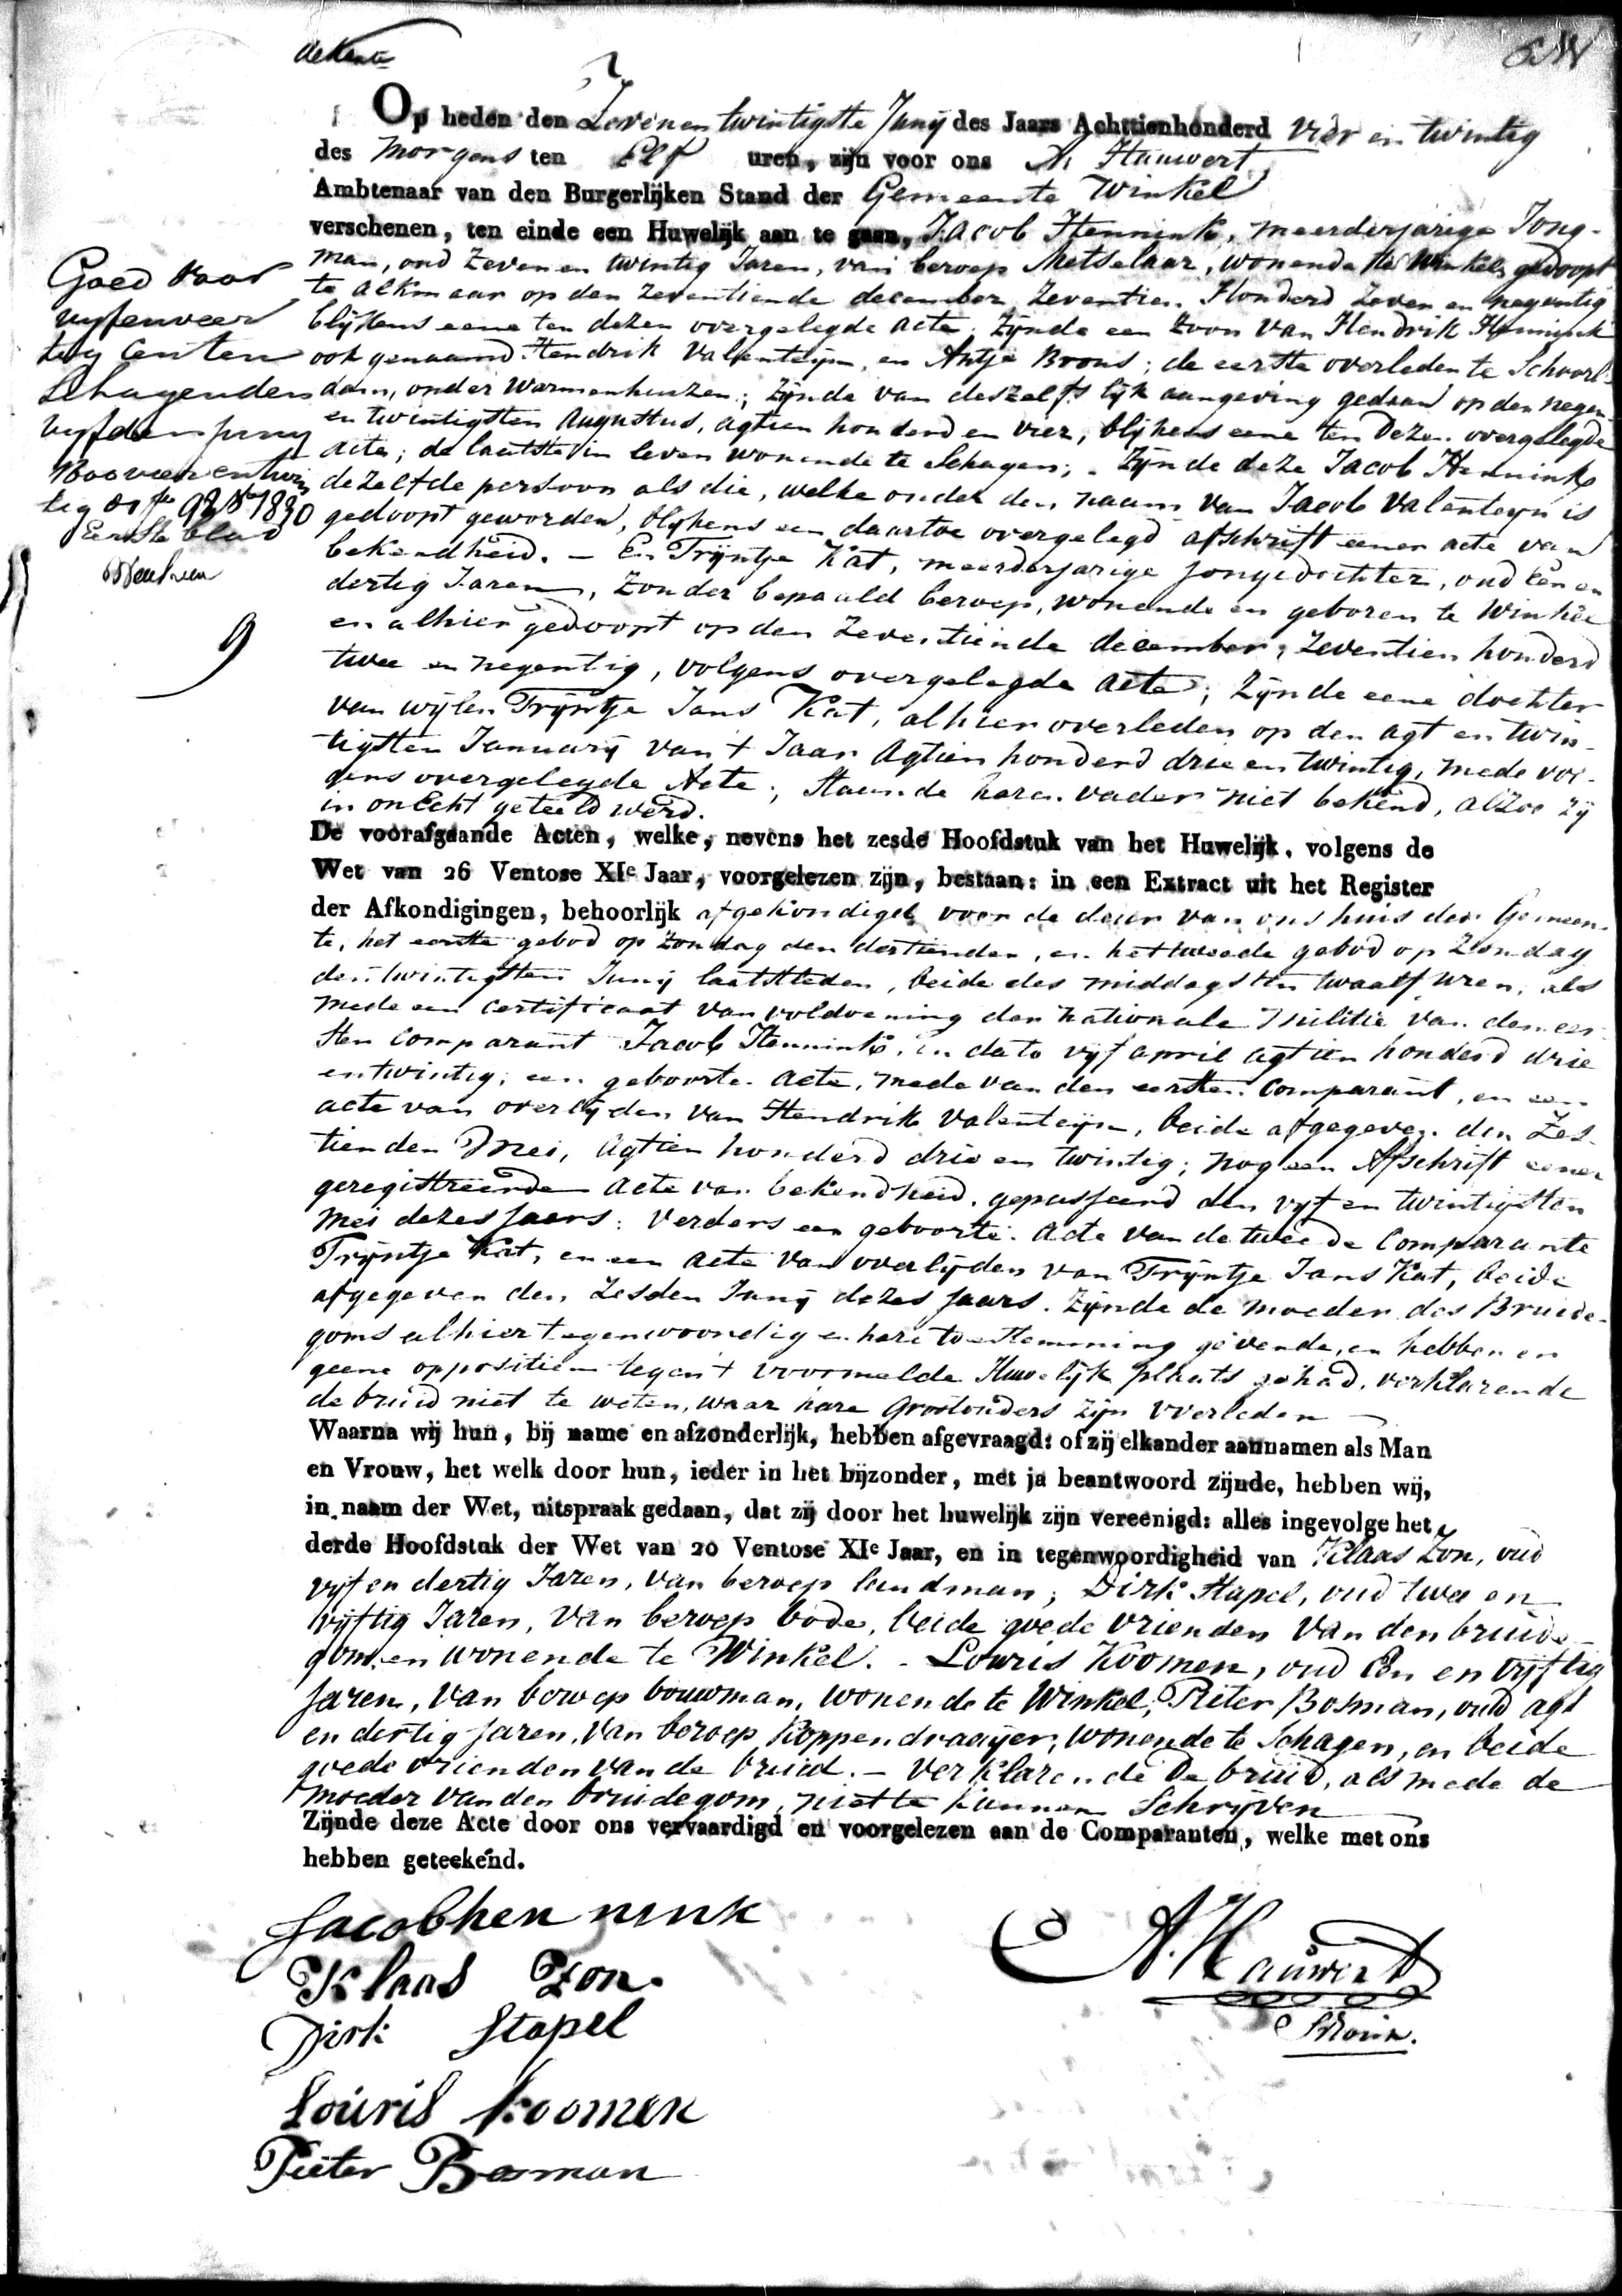 Op heden den Zevenentwintigste Junij des Jaars Achttienhonderd vier en twintig
des Morgens ten Elf uren, zijn voor ons A. Hauwert
Ambtenaar van den Burgerlijken Stand der Gemeente Winkel
verschenen, ten einde een Huwelijk aan te gaan, Jacob Hennink, meerderjarige Jong-
man, oud Zeven en twintig Jaren, van beroep Metselaar, wonende te Winkel, gedoopt
te Alkmaar op den Zeventiende december Zeventien Honderd Zeven en negentig
blijkens eene ten dezen overgelegde acte; Zijnde een Zoon van Hendrik Hennink
ook genaamd Hendrik Valenteijn, en Antje Boons; de eerste overleden te Schoorl-
dam, onder Warmenhuizen; Zijnde van deszelfs lijk aangeving gedaan op den negen
en twintigsten Augustus, agtien honderd en vier, blijkens eene ten Dezen overgelegde
acte; de laatste in leven wonende te Schagen; Zijnde deze Jacob Hennink
dezelfde persoon als die, welke onder den naam van Jacob Valenteyn is
gedoopt geworden, blijkens een daartoe overgelegd afschrift eener acte van
bekendheid. – En Trijntje Kat, meerderjarige jongedochter, oud een en
dertig Jaren, Zonder bepaald beroep, wonende en geboren te Winkel
en alhier gedoopt op den Zeventiende december, Zeventien honderd
twee en negentig, volgens overgelegde acte; Zijnde eene dochter
van wijlen Trijntje Jans Kat, alhier overleden op den agt en twin-
tigsten Januarij van 't Jaar Agtien honderd drie en twintig, mede vol-
gens overgelegde Acte; Staande haren vader niet bekend, alzoo zij
in onEcht geteeld werd.
De voorafgaande Acten, welke, nevens het zesde Hoofdstuk van het Huwelijk, volgens de
Wet van 26 Ventose XIe Jaar, voorgelezen zijn, bestaan: in een Extract uit het Register
der Afkondigingen, behoorlijk afgekondigd voor de deur van ons huis der Gemeen-
te, het eerste gebod op Zondag den dertienden, en het tweede gebod op Zondag
den twintigsten Junij laatstleden, beide des middags ten twaalf uren, als
mede een certificaat van voldoening der Nationale Militie van den eer-
sten Comparant Jacob Hennink, in dato vijf april agtien honderd drie
en twintig; een geboorte acte, mede van den eersten Comparant, en een
acte van overlijden van Hendrik Valenteijn, beide afgegeven den Zes-
tienden Mei, Agtien honderd drie en twintig; nog een Afschrift eener
geregistreerde acte van bekendheid, gepasseerd den vijf en twintigsten
Mei dezes Jaars: Verders een geboorte Acte van de tweede Comparante
Trijntje Kat, en een acte van overlijden van Trijntje Jans Kat, beide
afgegeven den Zesden Junij dezes Jaars. Zijnde de moeder des Bruide-
goms alhier tegenwoordig en hare toestemming gevende, en hebben er
geene oppositien tegen 't voormelde Huwelijk plaats gehad, verklarende
de bruid niet te weten, waar hare Grootouders zijn overleden
Waarna wij hun, bij name en afzonderlijk, hebben afgevraagd: of zij elkander aannamen als Man
en Vrouw, het welk door hun, ieder in het bijzonder, met ja beantwoord zijnde, hebben wij,
in naam der Wet, uitspraak gedaan, dat zij door het huwelijk zijn vereenigd: alles ingevolge het
derde Hoofdstuk der Wet van 20 Ventose XIe Jaar, en in tegenwoordigheid van Klaas Zon, oud
vijf en dertig Jaren, van beroep landman; Dirk Stapel, oud twee en
vijftig Jaren, van beroep bode, beide goede vrienden van den bruide-
gom, en wonende te Winkel. – Louris Koomen, oud Een en vijftig
Jaren, van beroep bouwman, wonende te Winkel; Pieter Bosman, oud agt
en dertig Jaren, van beroep Koppendraaijer, wonende te Schagen, en beide
goede vrienden van de bruid. – Verklarende De bruid, als mede de
moeder van den bruidegom, niet te kunnen Schrijven
Zijnde deze Acte door ons vervaardigd en voorgelezen aan de Comparanten, welke met ons
hebben geteekend.
Goed voor
vijfenveer
tig Centen
Schagen den
vijfden Juny
tig
1830
Eerste blad
9
Jacob hennink
Klaas Zon.
Dirk Stapel
Louris Koomen
Pieter Bosman
A. Hauwert